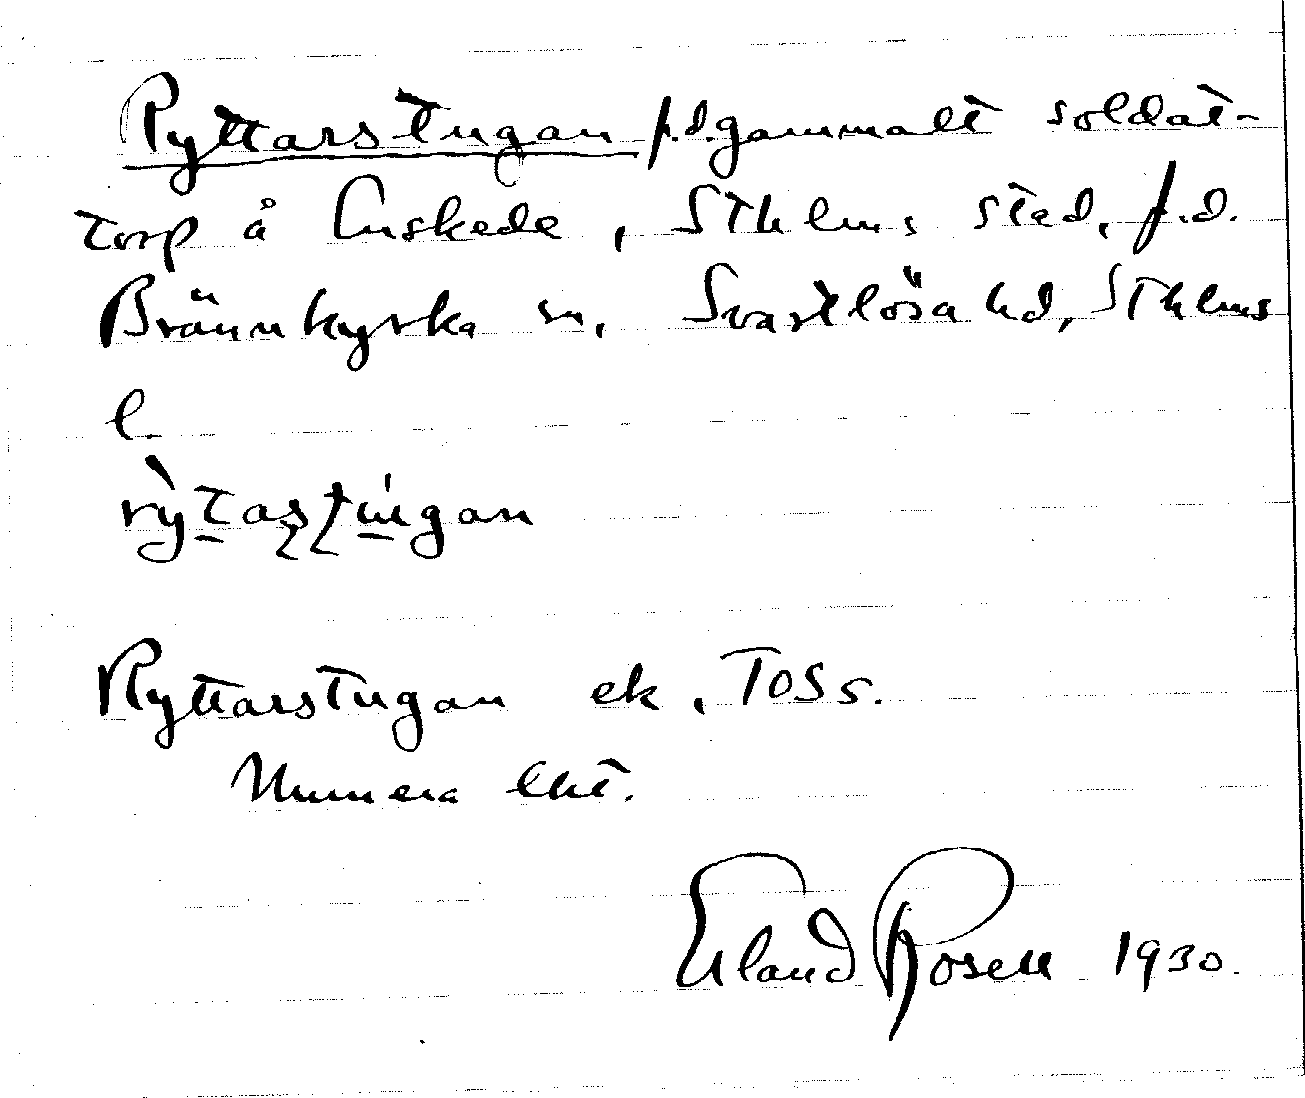 Ryttarstugan f.d. gammalt soldat-
torp å Enskede, Sthlms stad, f.d.
Brännkyrka sn, Svartlösa hd, Sthlms
l.
rỳtastúgan
Ryttarstugan ek, TOSs.
Numera
Erland Rosell 1930.